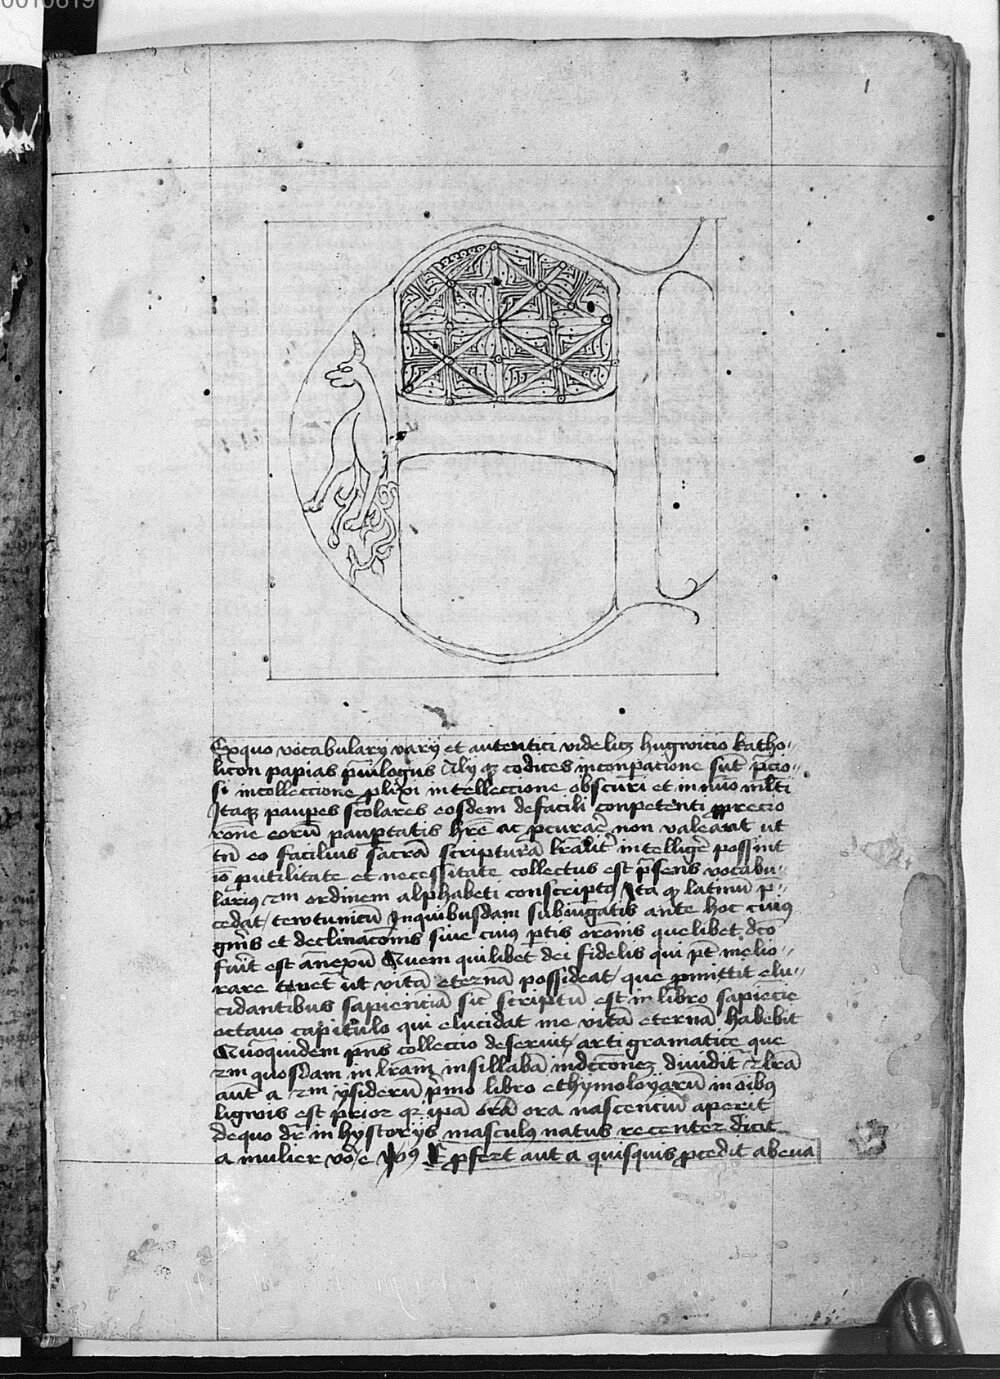 0010619
1
Exquo vocabularij varij et autentici videlicz hugwicio katho//
licon papias p̄uilogus Alij qz codices in conp̄acione sūt p̄cio//
si in collectione plixi in tellectione obscuri et in nūo m̄lti
Itaqz paup̄es scolares eosdem defacili conpetenti precio
rōne eorū paup̄tatis h̄re ac p̄curae non valeant ut
tn̄ eo facilius sacrā scripturā l̄raliter intellige possint
iō putilitate et necessitate collectus est p̄sens vocabu//
larius s̄m ordinem alphabeti conscriptus Ita qz latinū p̄//
cedat tewtunicū Inquibusdam subiungatis ante hoc cuius
gn̄is et declinacōnis siue cuius p̄tis orōnis quelibet dc̄o
fuit est annexū Quem quilibet dei fidelis qui p̄t melio//
rare tenet ut vitā eternā possideat que p̄mittit elu//
cidantibus sapienciā sic scriptū est in libro sapiēcie
octauo capitulo qui elucidat me vitā eternā habebit
Quoniquidem p̄ns collectio deseruit arti gramatice que
s̄m quosdam in l̄ram in sillabā indccōnez diuidit l̄rā
aūt a s̄m ysiderū p̄mo libro ethymoloyarū in oibus
ligwis est prior qz ip̄ā ora nascenciū aperit
dequo dr̄ in hystorijs masculus natus recenter dicit
a mulier vo e E p̄fert aut a quisquis p̄cedit ab eua